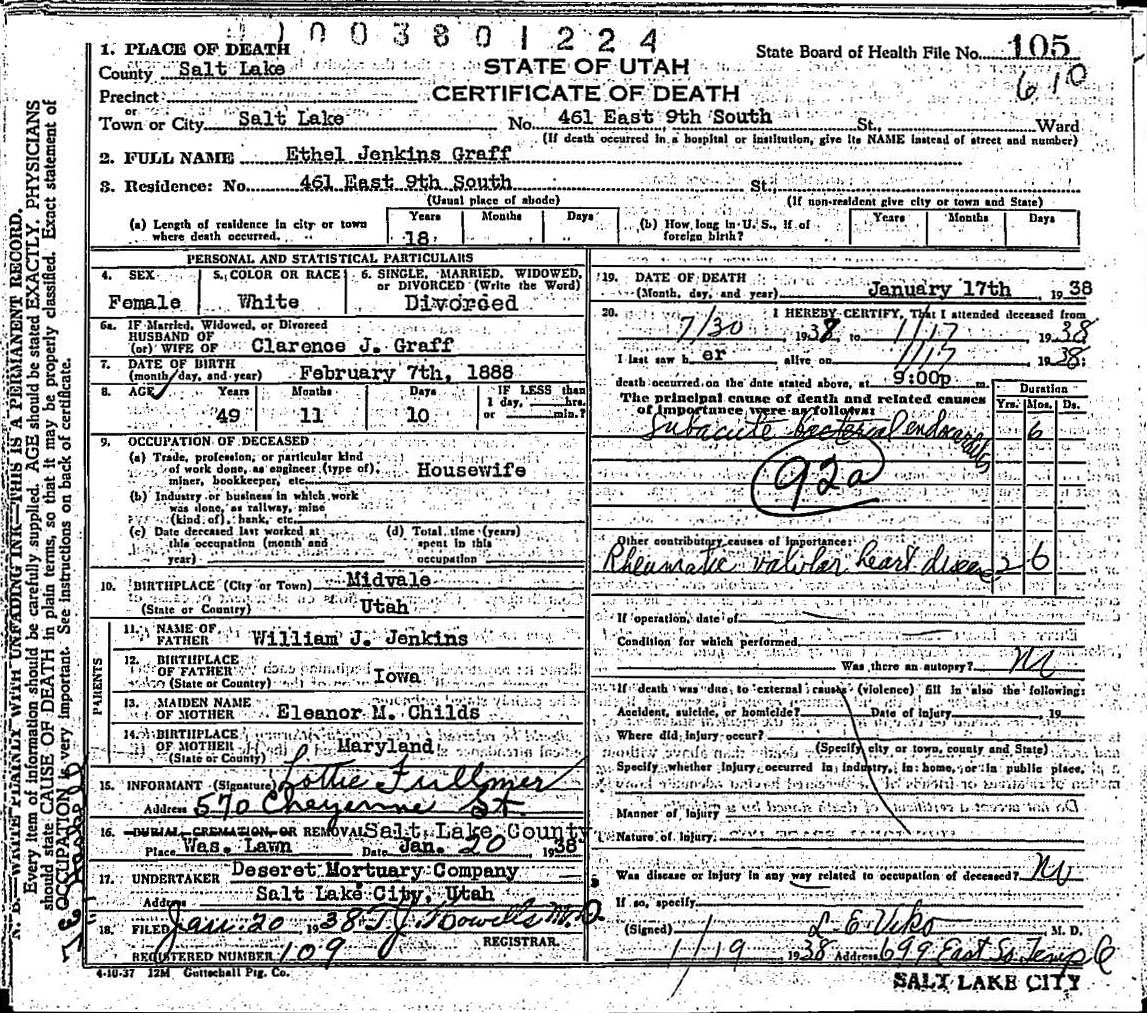 1 0 0 3 8 0 1 2 2 4
1. PLACE OF DEATH
County Salt Lake
Precinct
or
Town or City Salt Lake
State Board of Health File No. 105
610
STATE OF UTAH
CERTIFICATE OF DEATH
No. 461 East 9th South St., Ward
(If death occurred in a hospital or institution, give its NAME instead of street and number)
2. FULL NAME Ethel Jenkins Graff
3. Residence: No. 461 East 9th South St.
(Usual place of abode) (If non-resident give city or town and State)
(a) Length of residence in city or town where death occurred. Years 18 Months Days
(b) How long in U. S., if of foreign birth? Years Months Days
PERSONAL AND STATISTICAL PARTICULARS
4. SEX Female
5. COLOR OR RACE White
6. SINGLE, MARRIED, WIDOWED, or DIVORCED (Write the Word) Divorced
6a. IF Married, Widowed, or Divorced
HUSBAND OF
(or) WIFE OF Clarence J. Graff
7. DATE OF BIRTH
(month, day, and year) February 7th, 1888
8. AGE Years 49 Months 11 Days 10
IF LESS than
1 day, hrs.
or min.?
9. OCCUPATION OF DECEASED
(a) Trade, profession, or particular kind
of work done, as engineer (type of),
miner, bookkeeper, etc. Housewife
(b) Industry or business in which work
was done, as railway, mine
(kind of), bank, etc.
(c) Date deceased last worked at
this occupation (month and
year)
(d) Total time (years)
spent in this
occupation
10. BIRTHPLACE (City or Town) Midvale
(State or Country) Utah
PARENTS
11. NAME OF
FATHER William J. Jenkins
12. BIRTHPLACE
OF FATHER
(State or Country) Iowa
13. MAIDEN NAME
OF MOTHER Eleanor M. Childs
14. BIRTHPLACE
OF MOTHER
(State or Country) Maryland
15. INFORMANT (Signature) Lottie Fullmer
Address 570 Cheyenne St.
16. BURIAL, CREMATION, OR REMOVAL Salt Lake County
Place Was. Lawn Date Jan. 20 1938
17. UNDERTAKER Deseret Mortuary Company
Address Salt Lake City, Utah
18. FILED Jan 20 1938 T. J. Howells M.D.
REGISTRAR.
REGISTERED NUMBER 109
4-10-37 12M Gottschall Ptg. Co.
19. DATE OF DEATH
(Month, day, and year) January 17th 1938
20. I HEREBY CERTIFY, That I attended deceased from
7/30 1938 to 1/17 1938
I last saw her alive on 1/17 1938
death occurred on the date stated above, at 9:00p m.
The principal cause of death and related causes
of importance were as follows:
Duration
Yrs. Mos. Ds.
Subacute bacterial endocarditis 6
92a
Other contributory causes of importance:
Rheumatic valvular heart disease 2 6
If operation, date of
Condition for which performed
Was there an autopsy? no
If death was due to external causes (violence) fill in also the following:
Accident, suicide, or homicide? Date of injury 19
Where did injury occur?
(Specify city or town, county and State)
Specify whether injury occurred in industry, in home, or in public place.
Manner of injury
Nature of injury
Was disease or injury in any way related to occupation of deceased? no
If so, specify
(Signed) L. E. Viko M. D.
1/19 1938 Address 699 East So. Temple
SALT LAKE CITY
N. B.—WRITE PLAINLY WITH UNFADING INK—THIS IS A PERMANENT RECORD.
Every item of information should be carefully supplied. AGE should be stated EXACTLY. PHYSICIANS
should state CAUSE OF DEATH in plain terms, so that it may be properly classified. Exact statement of
OCCUPATION is very important. See instructions on back of certificate.